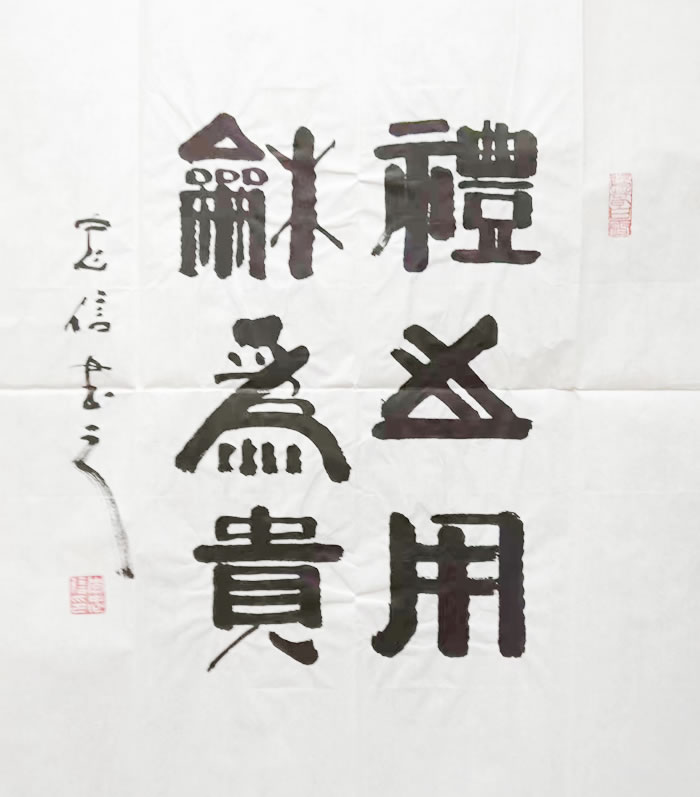 禮之用
龢為貴
宪信書之